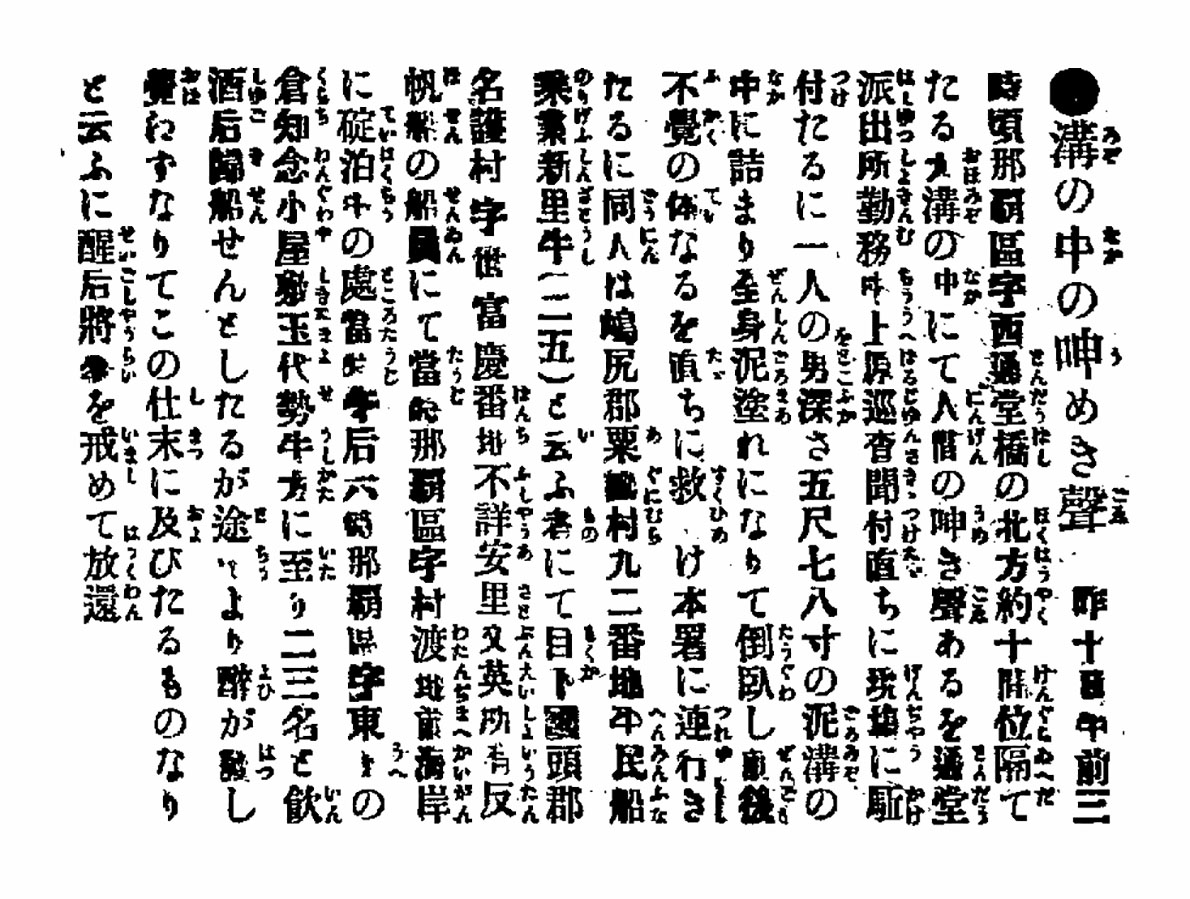 ●溝の中の呻めき聲　昨十日午前三
時頃那覇區字西通堂橋の北方約十間位隔て
たる大溝の中にて人間の呻き聲あるを通堂
派出所勤務中上原巡査聞付直ちに現塲に駈
付たるに一人の男深さ五尺七八寸の泥溝の
中に詰まり全身泥塗れになりて倒臥し前後
不覺の体なるを直ちに救け本署に連行き
たるに同人は島尻郡粟國村九二番地平民船
乗業新里牛(二五)と云ふ者にて目下國頭郡
名護村字世富慶番地不詳安里文英所有反
帆船の船員にて當時那覇區字村渡地前海岸
に碇泊中の處當日午后六時那覇區字東の
倉知念小屋敷玉代勢牛方に至り二三名と飮
酒后歸船せんとしたるが途中より醉が發し
覺わずなりてこの仕末に及びたるものなり
と云ふに醒后將來を戒めて放還